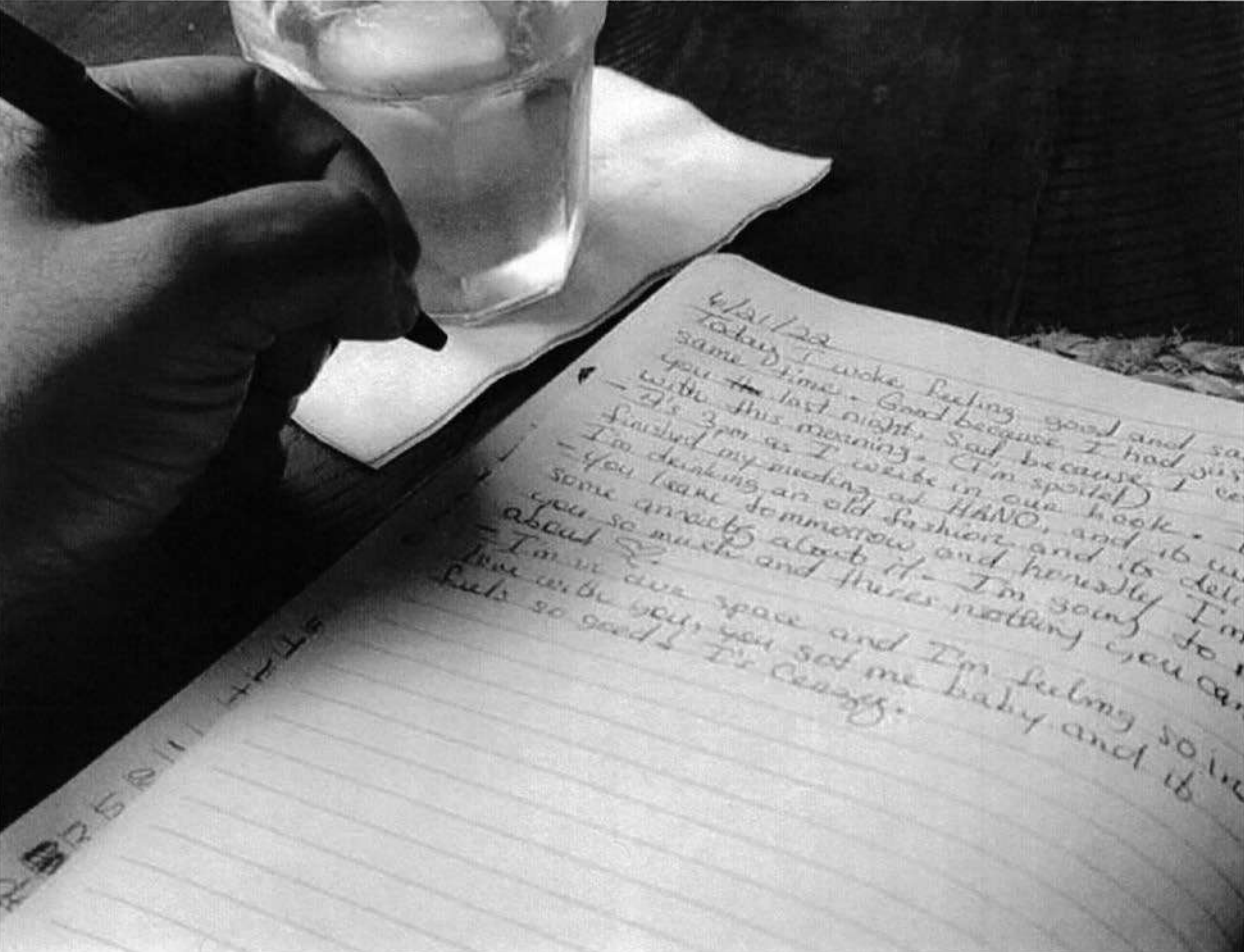 6/21/22
Today I woke feeling good and sa
same time. Good because I had jus
you last night, sad because I
with this morning. (I'm spoiled)
- It's 2pm as I write in our book.
finished my meeting at HANO, and it
I'm drinking an old fashion and its del
- You leave tommorow, and honestly I'm
some anxiety about it. I'm going to
you so much and theres nothing you can
about ♡.
- I'm in our space and I'm feeling so in
love with you, you got me baby and it
feels so good! I's Crazy.